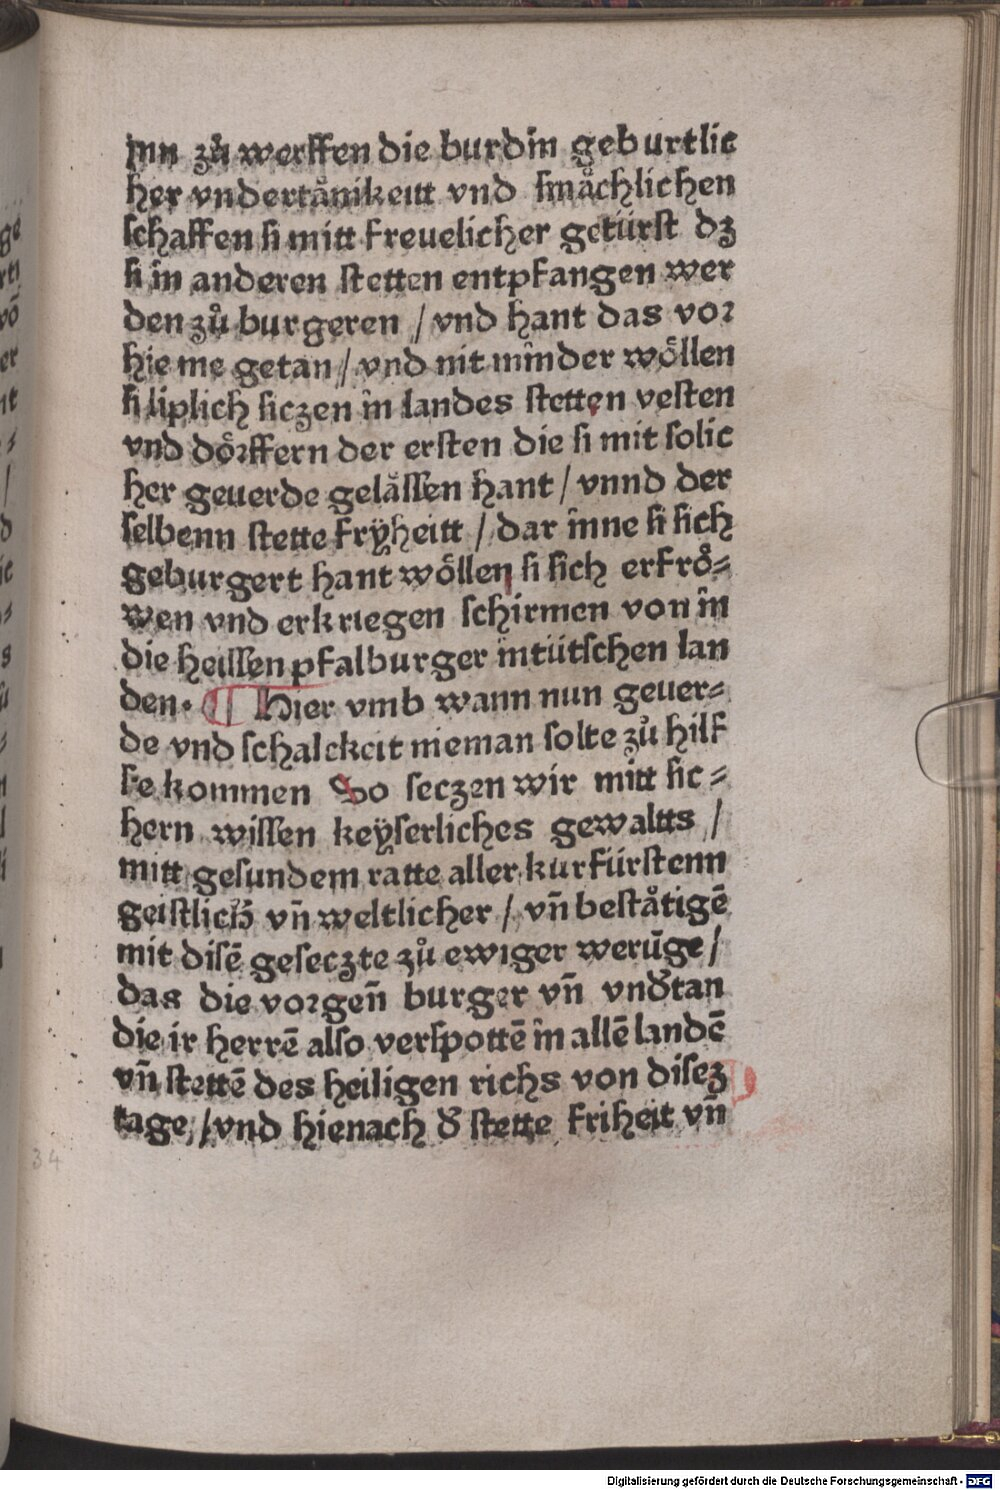 jnn zů werffen die burdin geburtlic
her vndertånikeitt vnd småchlichen
schaffen si mitt freuelicher getürst dz
si in anderen stetten entpfangen wer
den zů burgeren / vnd hant das vor
hie me getan / vnd nit minder wöllen
si liplich siczen in landes stetten vesten
vnd dörffern der ersten die si mit solic
her geuerde gelåssen hant / vnnd der
selbenn stette frÿheitt / dar inne si sich
geburgert hant wöllen si sich erfrö⸗
wen vnd erkriegen schirmen von in
die heissen pfalburger intütschen lan
den. ¶ Hier vmb wann nun geuer⸗
de vnd schalckeit nieman solte zů hilf
fe kommen So seczen wir mitt sic⸗
hern wissen keÿserliches gewaltts /
mitt gesundem ratte aller kurfürstenn
geistlich̕ vn̄ weltlicher / vn̄ beståtigē
mit disē geseczte zů ewiger werūge /
das die vorgen̄ burger vn̄ vnd̕tan
die ir herrē also verspottē in allē landē
vn̄ stettē des heiligen richs von disez
tage / vnd hienach d̕ stette friheit vn̄
34
Digitalisierung gefördert durch die Deutsche Forschungsgemeinschaft - DFG